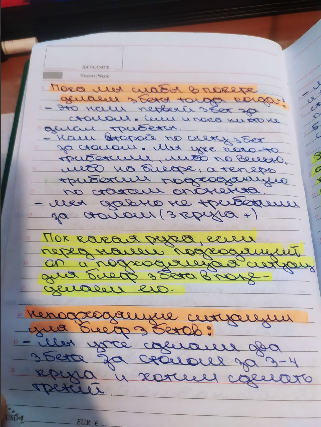 Пока мы слабы в покере
делаем 3бет тогда когда:
- Это наш первый 3бет за
столом. Или и пока никто не
делал трибета.
- Наш второй по счету 3бет
за столом. Мы уже кого-то
трибетили, либо по велью,
либо на блефе, и теперь
трибетим подходящую
по статам опонента.
- Мы давно не трибетили
за столом (3 круга +)
Пох какая рука, если
перед нами подходящий
оп и подходящая ситуация
для блеф 3бета в позе -
делаем его.
Неподходящие ситуации
для блеф 3бетов:
- Мы уже сделали два
3бета за столом за 3-4
круга и хотим сделать
третий.